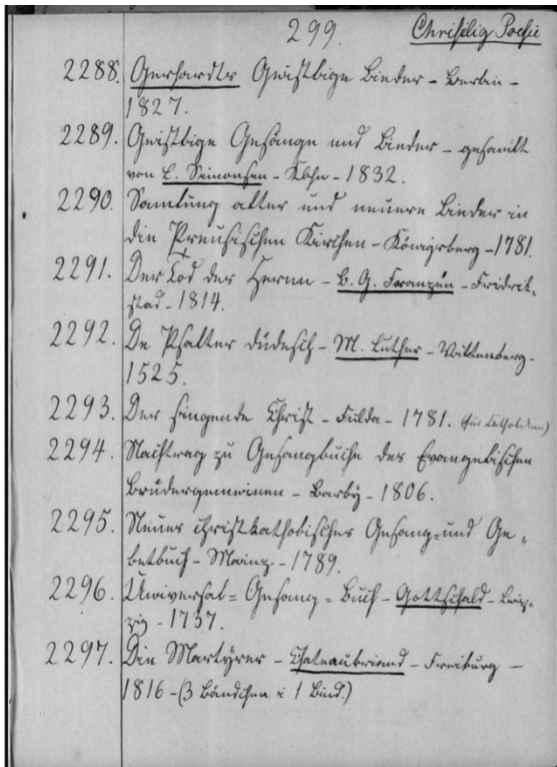 299. Christlig Poesie
2288. Gerhardts Geistlige Lieder - Berlin -
1827.
2289. Geistlige Gesänge und Lieder - gesamlt
von L. Simonsen - Kbhn - 1832.
2290. Samlung alter und neuere Lieder in
die Preusischen Kirchen - Königsberg - 1781.
2291. Der Tod des Herrn - B. G. Franzén - Fridrik-
stad - 1814.
2292. De Psalter düdesch - M. Luther - Wittenberg -
1525.
2293. Der singende Christ - Fulda - 1781. (für Catholiken)
2294. Nachtrag zu Gesangbuche des Evangelischen
Brüdergemeinen - Barby - 1806.
2295. Neues christkatholisches Gesang- und Ge-
betbuch - Mainz. - 1789.
2296. Universal = Gesang = Buch - Gottschald - Leip-
zig - 1737.
2297. Die Martyrer - Chateaubriand - Freiburg -
1816 - (3 Bändchen i 1 Bind.)